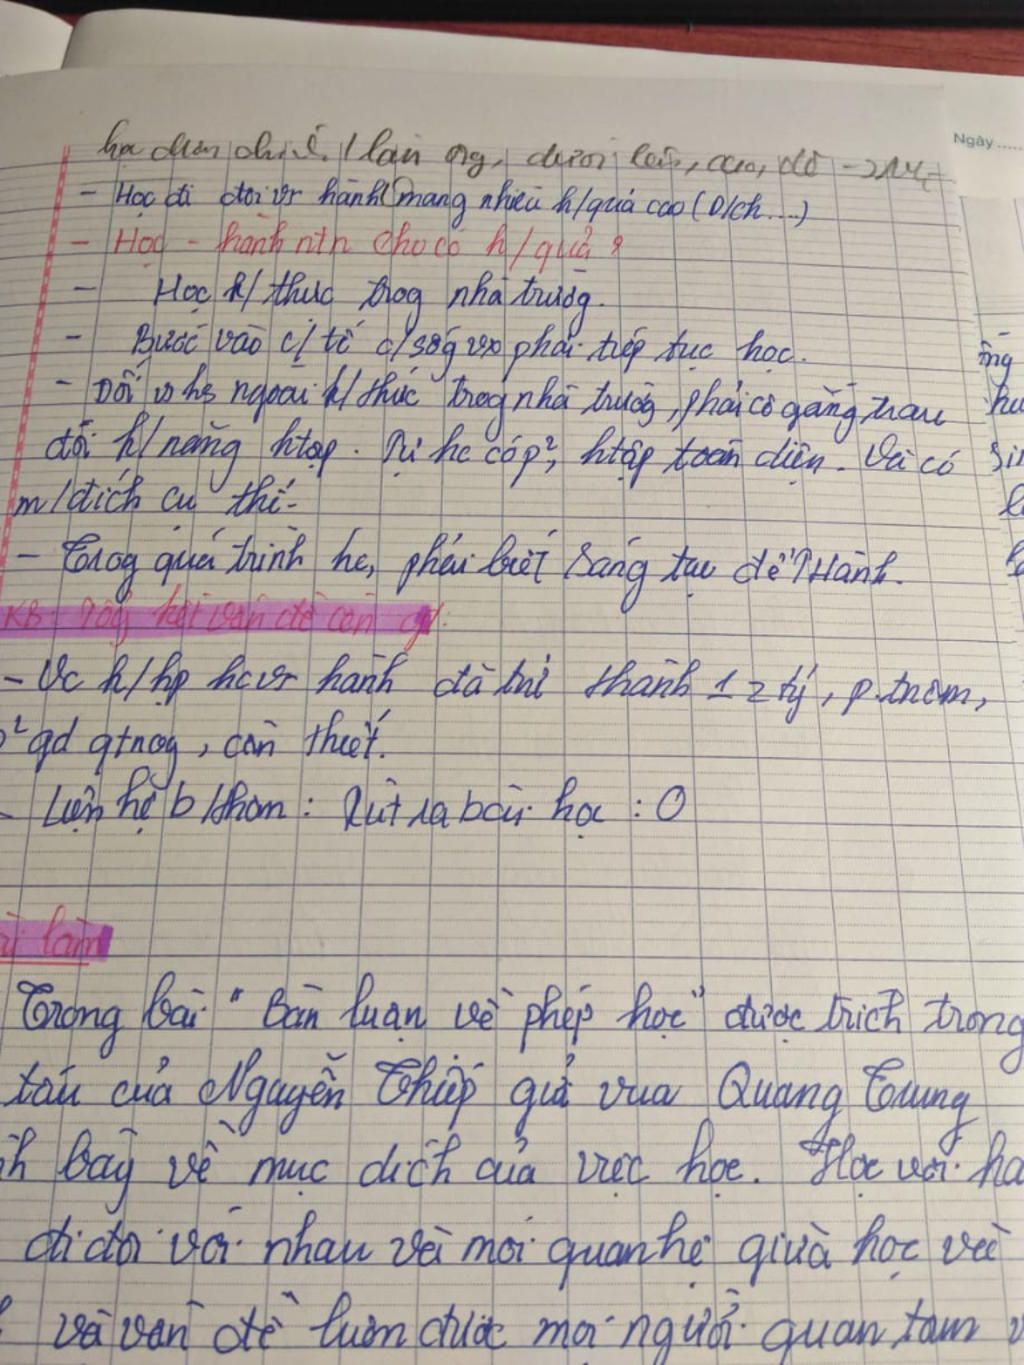 Ngày .....
- Học đi đôi vs hành mang nhiều h/quả cao (D/ch...)
- Học - hành ntn cho có h/quả?
- Học k/thức trog nhà trườg.
- Bước vào c/tế c/sốg vx phải tiếp tục học.
- Đối vs hs ngoài k/thức trog nhà trườg, phải cố gắng trau
dồi k/năng htập. Tự hc cóp², htập toàn diện. Và có
m/đích cụ thể.
- Trog quá trình hc, phải biết sáng tạo để Hành.
KB: Tổg kết vấn đề cần
- Vc k/hp hc vs hành đã trở thành 1
qtrọg, cần thiết.
- Liên hệ b/thân: Rút ra bài học: 0
làm
Trong bài "Bàn luận về phép học" được trích trong
tấu của Nguyễn Thiếp gửi vua Quang Trung
bày về mục đích của việc học. Học với
đi đôi với nhau và mối quan hệ giữa học và
và vấn đề luôn được mọi người quan tâm